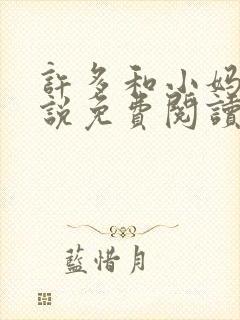 許多和小媽
說免費閱讀
藍惜月